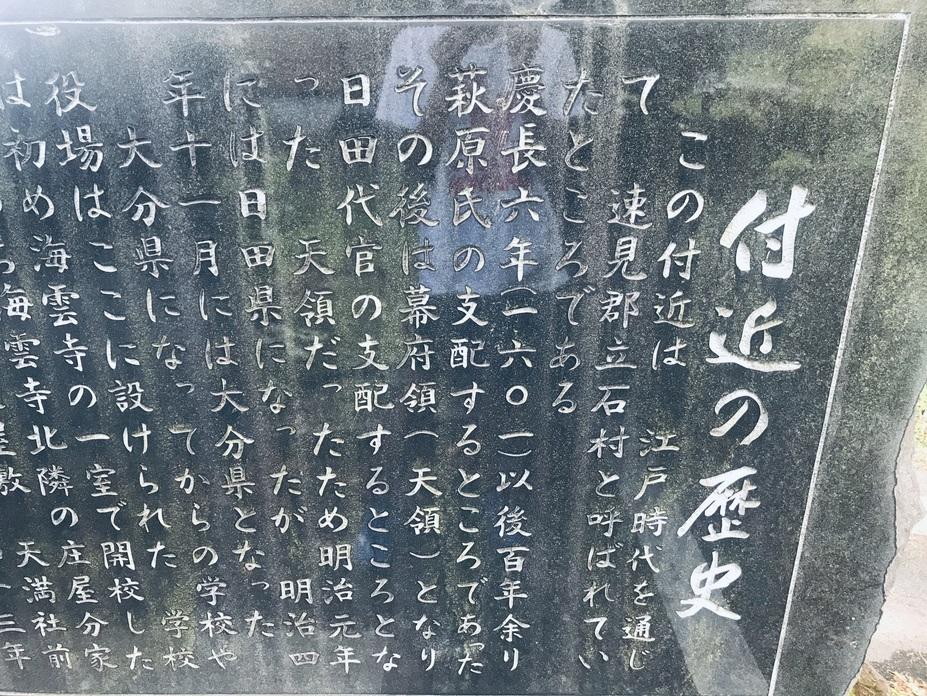 付近の歴史
この付近は 江戸時代を通じ
て 速見郡立石村と呼ばれてい
たところである
慶長六年(一六〇一)以後百年余り
萩原氏の支配するところであった
その後は幕府領(天領)となり
日田代官の支配するところとな
った 天領だったため明治元年
には日田県になったが 明治四
年十一月には大分県となった
大分県になってからの学校や
役場はここに設けられた 学校
は初め海雲寺の一室で開校した
海雲寺北隣の庄屋分家
敷 天満社前
三年